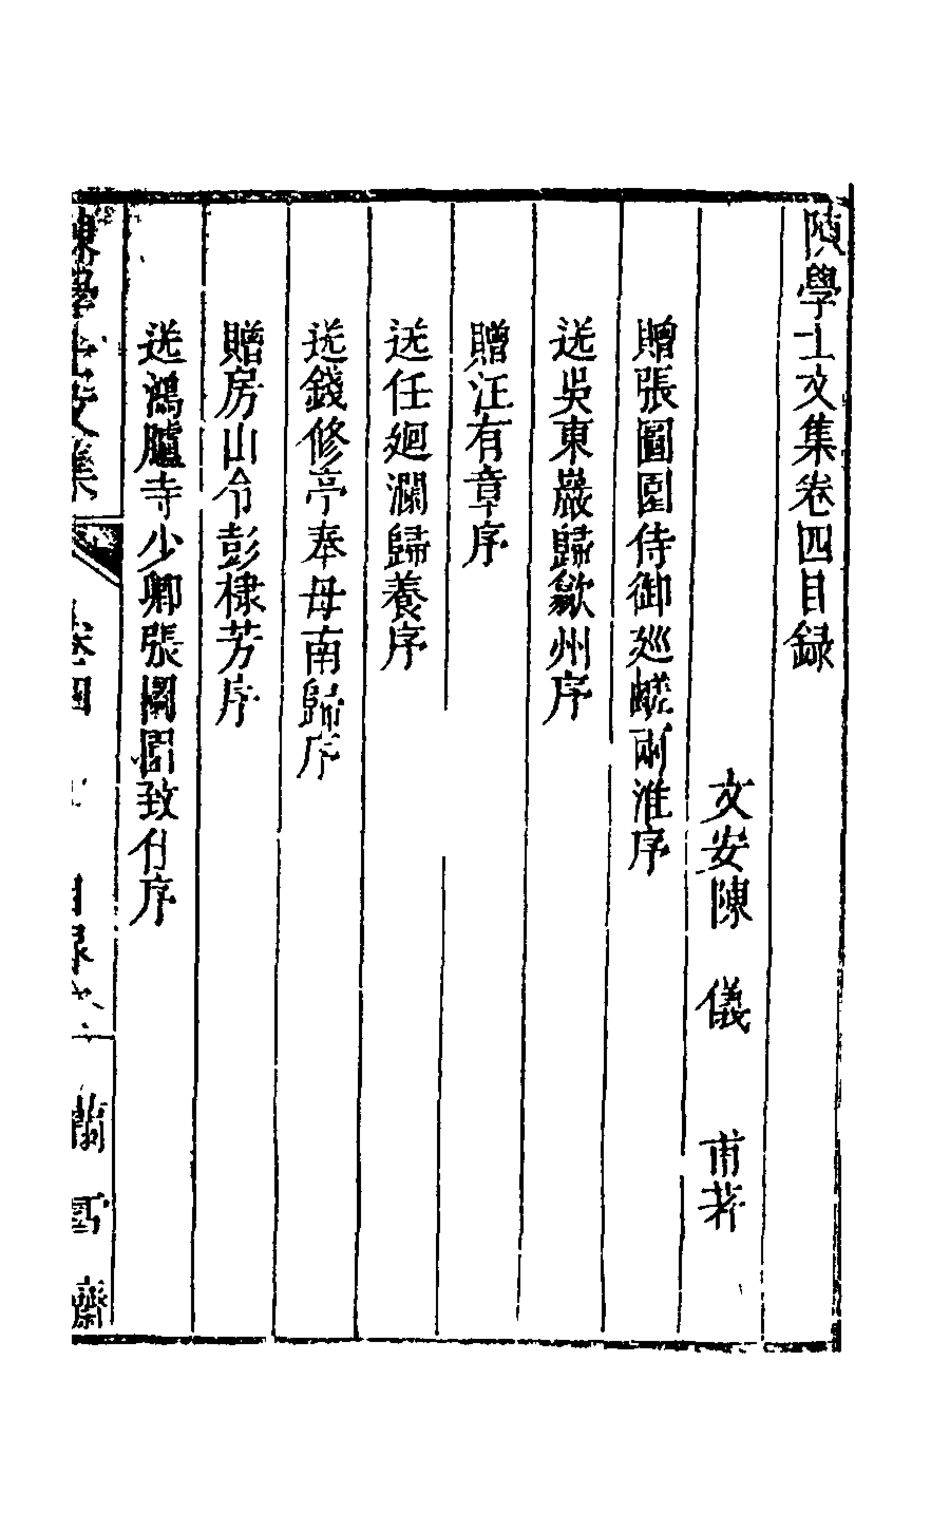 陳學士文集卷四目録
文安陳 儀 著
贈張圖園侍御巡鹺兩淮序
送吳東巖歸歙州序
贈汪有章序
送任廻瀾歸養序
送錢修亭奉母南歸序
贈房山令彭棣芳序
送鴻臚寺少卿張園致仕序
陳學士文集 卷四 目録 蘭雪齋